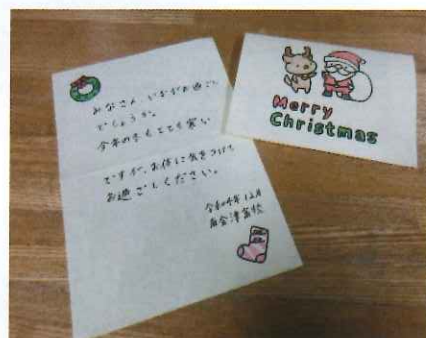 みなさん、いかがお過ごし
でしょうか。
今年の冬もとても寒い
ですが、お体に気をつけて
お過ごしください。
令和4年12月
Merry
Christmas